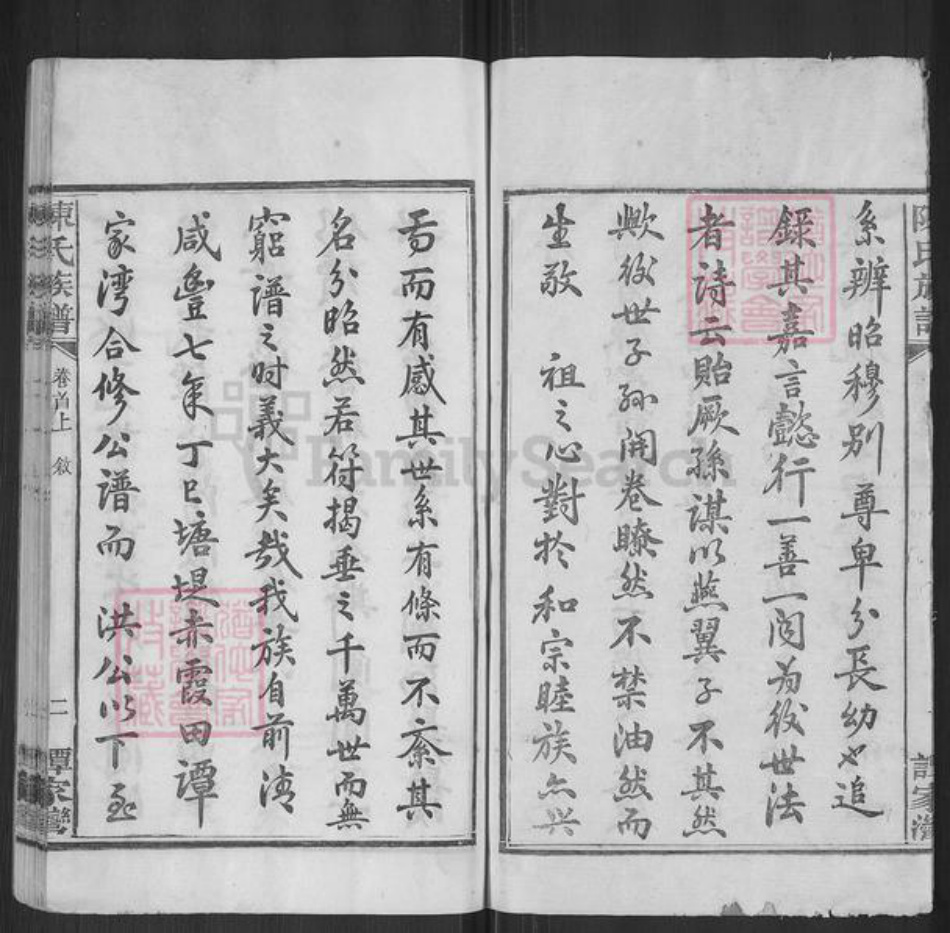 陳氏族譜
譚家灣
系辨昭穆別尊卑分長幼也追
錄其嘉言懿行一善一問為後世法
者詩云貽厥孫謀以燕翼子不其然
歟後世子孫開卷瞭然不禁油然而
生敬 祖之心對於和宗睦族亦興
焉而有感其世系有條而不紊其
名分昭然若符揭垂之千萬世而無
窮譜之时義大矣哉我族自前清
咸豐七年丁巳塘堤赤霞田譚
家湾合修公譜而 洪公以下丞
陳氏族譜
卷首上 敘
二
譚家灣
FamilySearch